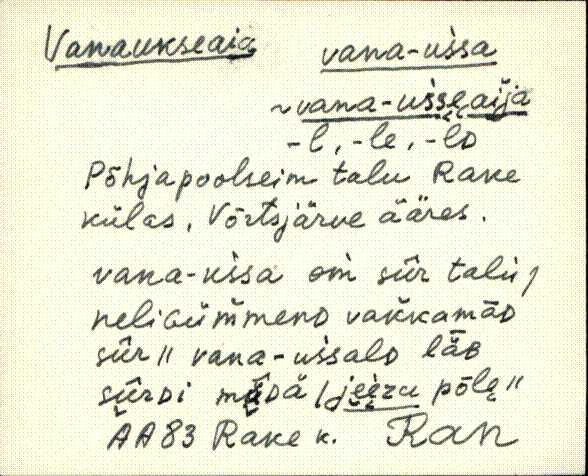 Vanaukseaia vana-uśsa
~vana-uśsęaija
-l, -le, -lD
Põhjapoolseim talu Rake
külas, Võrtsjärve ääres.
vana-uśsa om sūr talu,
neliGüm̆mend vak̆kamāD
sūr ‖ vana-uśsalD läB
sūrDi müDä /jęęzu põlę ‖
AA83 Rake k. Ran